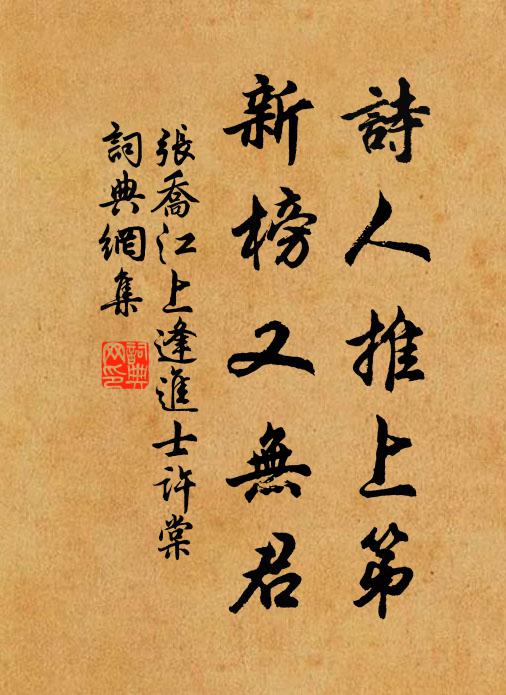 詩人推上第
新榜又無君
張喬江上逢進士許棠
詞典網集
詞典網印